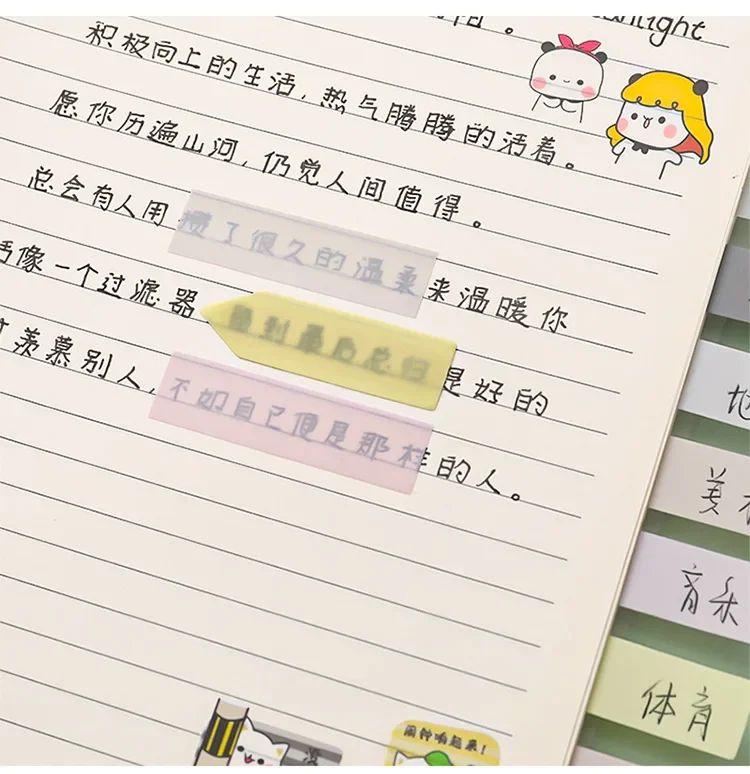 阳。 light
积极向上的生活,热气腾腾的活着。
愿你历遍山河,仍觉人间值得。
总会有人用攒了很久的温柔来温暖你
活像一个过滤器 留到最后总归是好的
羡慕别人,不如自己便是那样的人。
美
音乐
体育
闹钟响起来!
没